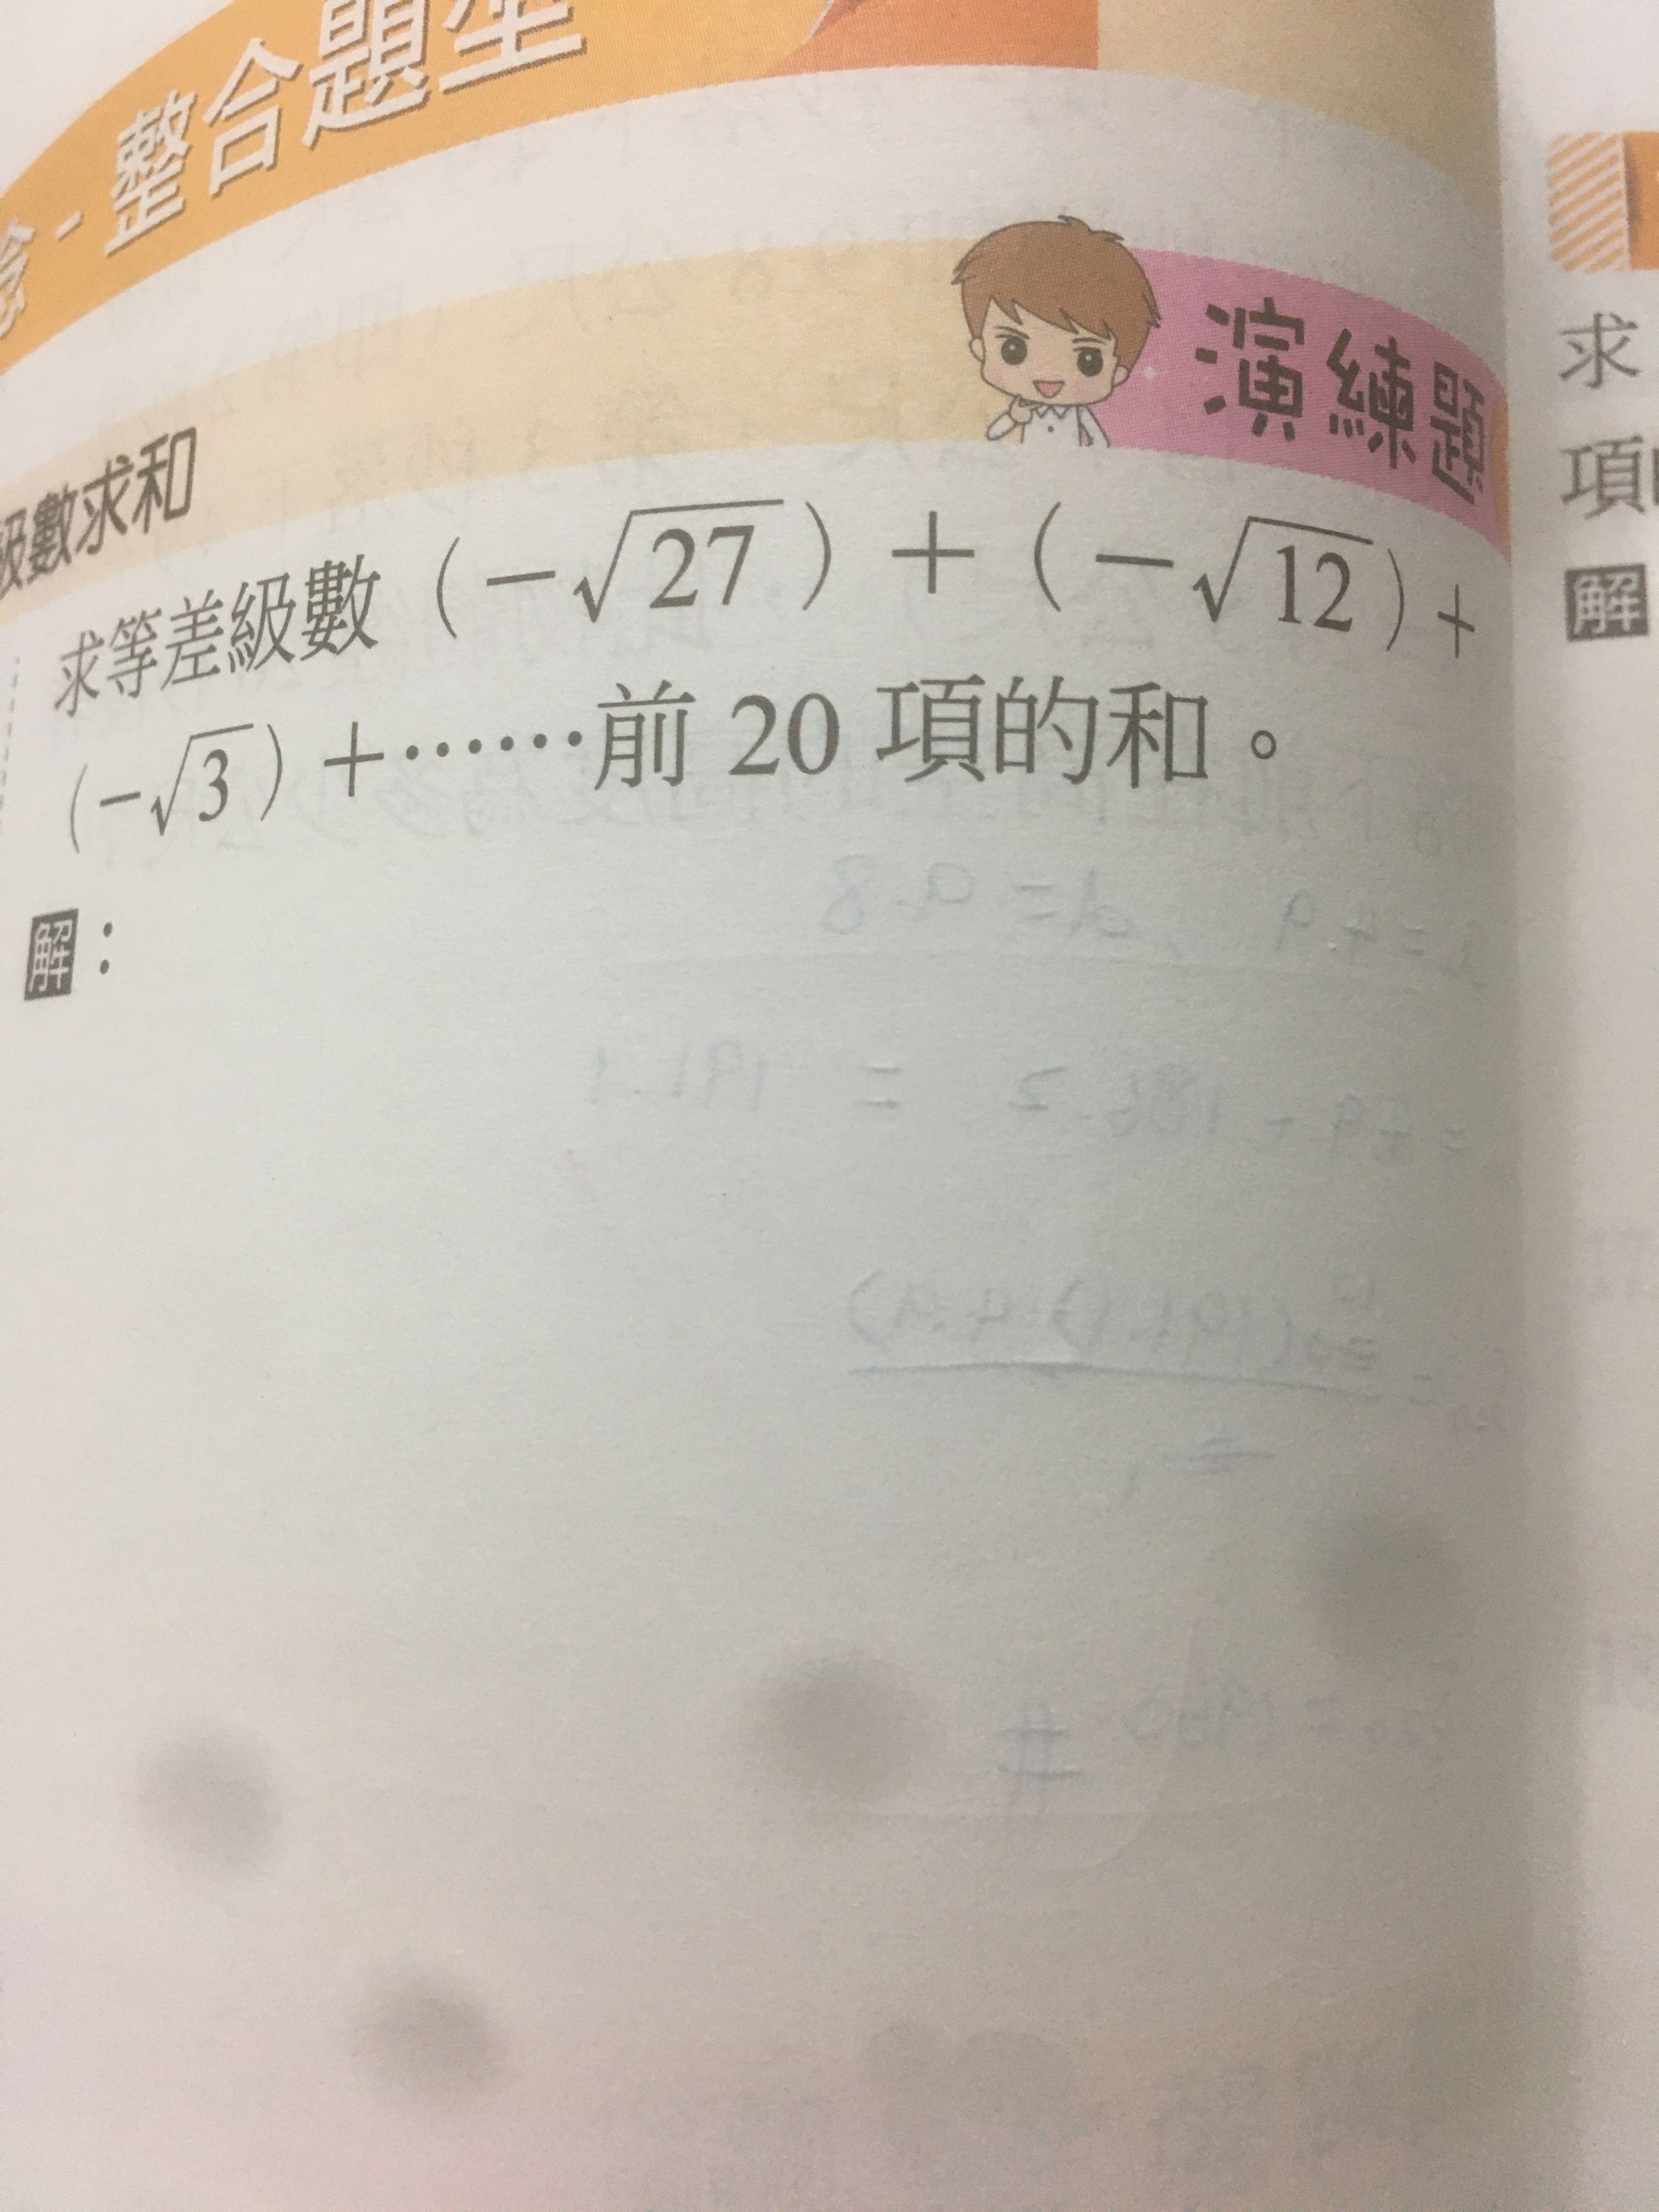 整合題型
演練題
級數求和
求等差級數（−√27）＋（−√12）＋
（−√3）＋……前 20 項的和。
解：
求
項
解